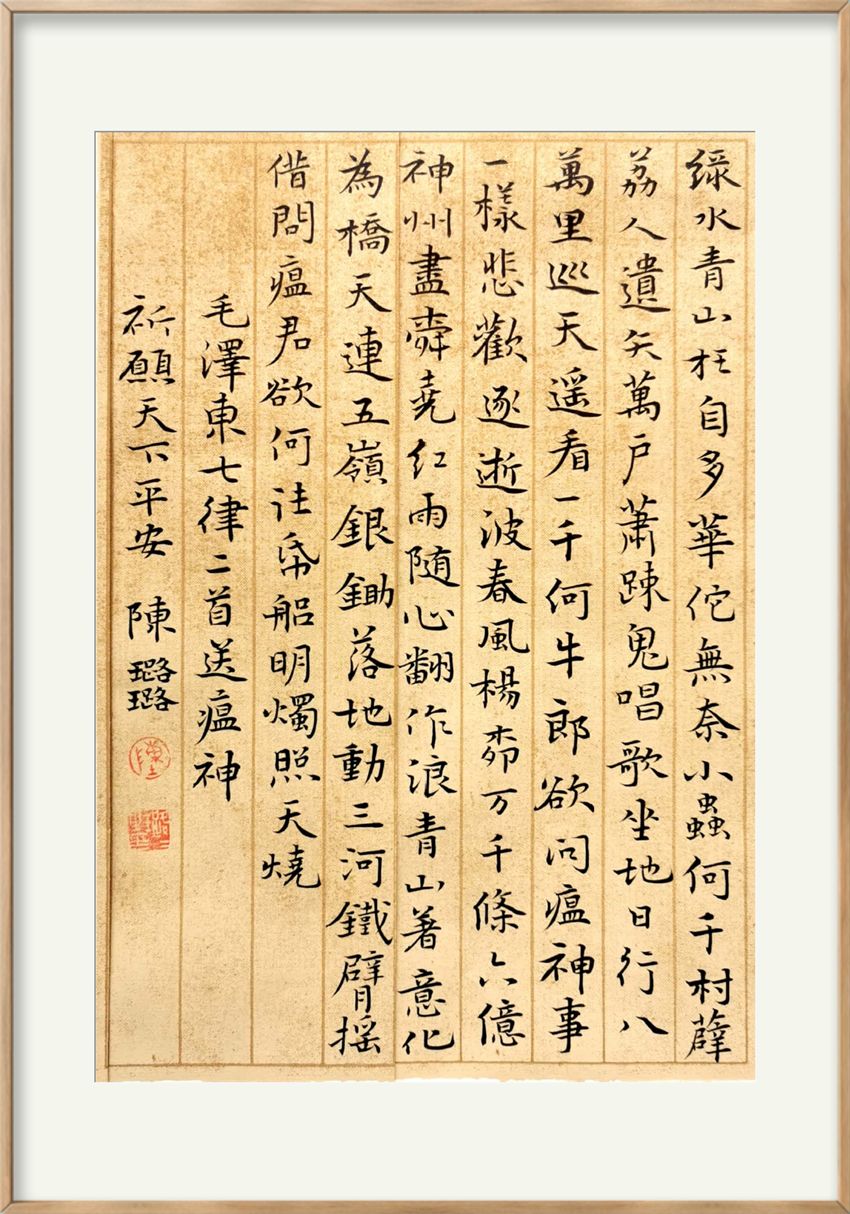 綠水青山枉自多華佗無奈小蟲何千村薜
荔人遺矢萬戶蕭疎鬼唱歌坐地日行八
萬里巡天遥看一千何牛郎欲问瘟神事
一樣悲歡逐逝波春風楊桺万千條六億
神州盡舜堯红雨随心翻作浪青山著意化
為橋天連五嶺銀鋤落地動三河鐵臂揺
借問瘟君欲何往帋船明燭照天燒
毛澤東七律二首送瘟神
祈願天下平安 陳璐璐